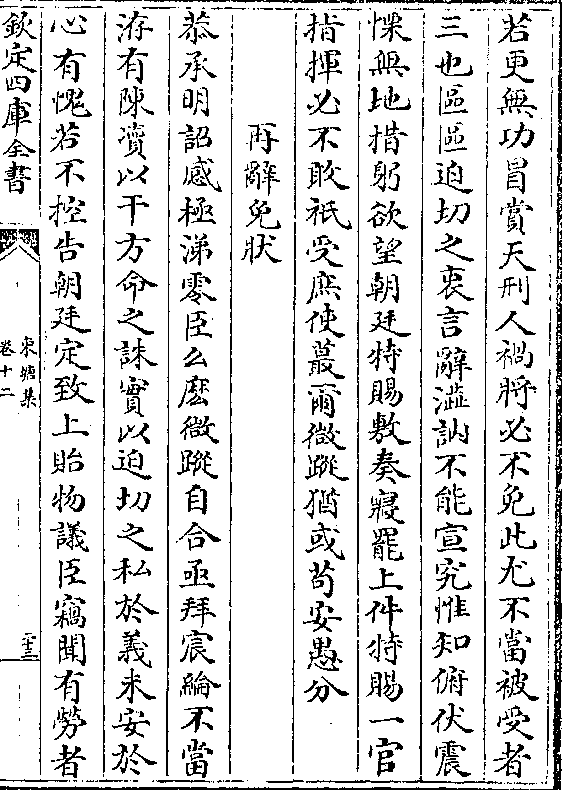 若更無功冒賞天刑人禍將必不免此尤不當被受者
三也區區迫切之衷言辭澁訥不能宣究惟知俯伏震
慄無地措躬欲望朝廷特賜敷奏寢罷上件特賜一官
指揮必不敢祇受庶使蕞爾微蹤猶或苟安愚分
再辭免狀
恭承明詔感極涕零臣么麽微蹤自合亟拜宸綸不當
洊有陳瀆以干方命之誅實以迫切之私於義未安於
心有愧若不控告朝廷定致上貽物議臣竊聞有勞者
欽定四庫全書
卷十二